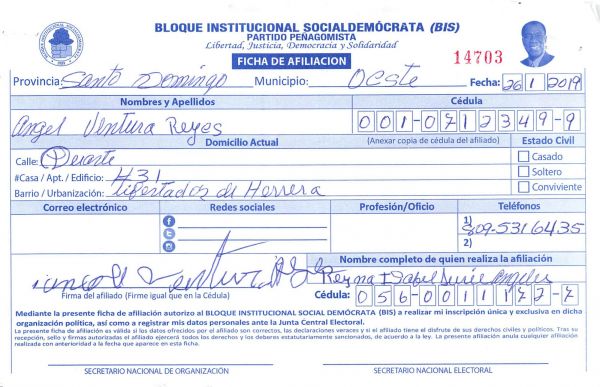 BLOQUE INSTITUCIONAL SOCIALDEMÓCRATA (BIS)
PARTIDO PEÑAGOMISTA
Libertad, Justicia, Democracia y Solidaridad
FICHA DE AFILIACION
14703
Provincia Santo Domingo Municipio: Oeste Fecha: 26/1/2019
Nombres y Apellidos Cédula
Angel Ventura Reyes 001-0712349-9
Domicilio Actual (Anexar copia de cédula del afiliado) Estado Civil
Calle: Duarte Casado
#Casa / Apt. / Edificio: #31 Soltero
Barrio / Urbanización: Libertador de Herrera Conviviente
Correo electrónico Redes sociales Profesión/Oficio Teléfonos
1) 809-5316435
2)
Nombre completo de quien realiza la afiliación
Reyna Isabel Angeles
Firma del afiliado (Firme igual que en la Cédula) Cédula: 056-0011172-7
Mediante la presente ficha de afiliación autorizo al BLOQUE INSTITUCIONAL SOCIAL DEMÓCRATA (BIS) a realizar mi inscripción única y exclusiva en dicha
organización política, así como a registrar mis datos personales ante la Junta Central Electoral.
La presente ficha de afiliación es válida si los datos ofrecidos por el afiliado son correctos, las declaraciones veraces y si el afiliado tiene el disfrute de sus derechos civiles y políticos. Tras su
recepción, sello y firmas autorizadas el afiliado ejercerá todos los derechos y los deberes estatutariamente sancionados, de acuerdo a la ley. La presente afiliación anula cualquier afiliación
realizada con anterioridad a la fecha que aparece en esta ficha.
SECRETARIO NACIONAL DE ORGANIZACIÓN SECRETARIO NACIONAL ELECTORAL